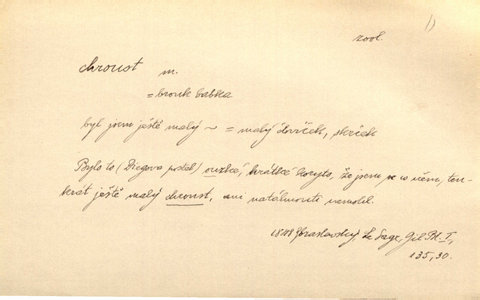 zool.
chroust m.
= brouk babka
byl jsem ještě malý ~ = malý človíček,
Bylo to (Diegova postel) ouzké, krátké koryto, že jsem se w něm, ten-
krát ještě malý chroust, ani natáhnouti nemohl.
Le Sage, Gil Bl. I,
135, 30.